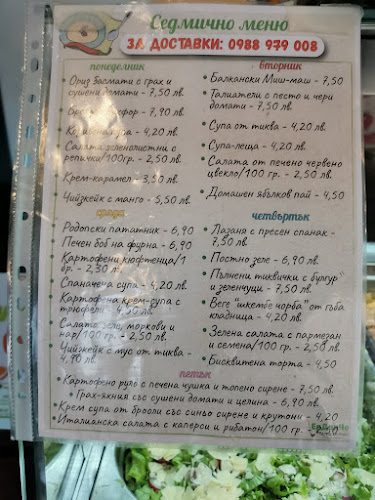 Седмично меню
ЗА ДОСТАВКИ: 0988 979 008
понеделник
• Ориз басмати с грах и
сушени домати - 7,50 лв.
- 7,90 лв.
супа - 4,20 лв.
Салата зеленолистни с
репички/100гр - 2,50 лв.
• Крем-карамел - 3,50 лв.
• Чийзкейк с манго - 5,50 лв.
вторник
• Балкански Миш-маш - 7,50
• Талиатели с песто и чери
домати - 7,50 лв.
• Супа от тиква - 4,20 лв.
• Супа-леща - 4,20 лв.
• Салата от печено червено
цвекло/100 гр - 2,50 лв.
• Домашен ябълков пай - 4,50
сряда
Родопски пататник - 6,90
• Печен боб на фурна - 6,90
• Картофени кюфтенца/1
бр - 2,30 лв.
• Спаначена супа - 4,20 лв.
Картофена крем-супа с
трюфели - 4,50 лв.
Салата зеле, моркови и
нар/100 гр - 2,50 лв.
• Чийзкейк с мус от тиква -
4,90 лв.
четвъртък
• Лазаня с пресен спанак -
7,50 лв.
• Постно зеле - 6,90 лв.
• Пълнени тиквички с булгур
и зеленчуци - 7,50 лв.
• Веге "шкембе чорба" от гъба
кладница - 4,20 лв.
• Зелена салата с пармезан
и семена/100 гр. - 2,50 лв.
• Бисквитена торта - 4,50
петък
• Картофено руло с печена чушка и топено сирене - 7,50 лв.
• Грах-яхния със сушени домати и целина - 6,90 лв.
• Крем супа от броколи със синьо сирене и крутони - 4,20
• Италианска салата с каперси и рибатон/100 гр -